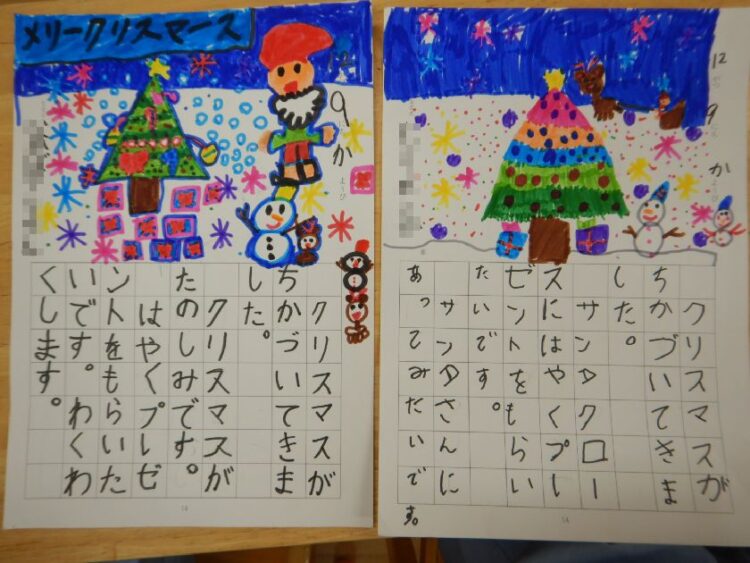 メリークリスマース
12
9
か
クリスマスが
ちかづいてきま
した。
クリスマスが
たのしみです。
はやくプレゼ
ントをもらいた
いです。わくわ
くします。
12
9
か
クリスマスが
ちかづいてきま
した。
サンタクロー
スにはやくプレ
ゼントをもらい
たいです。
サンタさんに
あってみたいです。